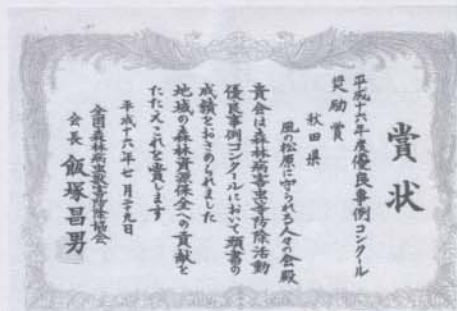 賞状
平成十六年度優良事例コンクール
奨励賞
秋田県
風の松原に守られる人々の会殿
貴会は森林病害虫等防除活動
優良事例コンクールにおいて頭書の
成績をおさめられました
地域の森林資源保全への貢献を
たたえこれを賞します
平成十六年七月二十九日
全国森林病虫獣害防除協会
会長 飯塚昌男